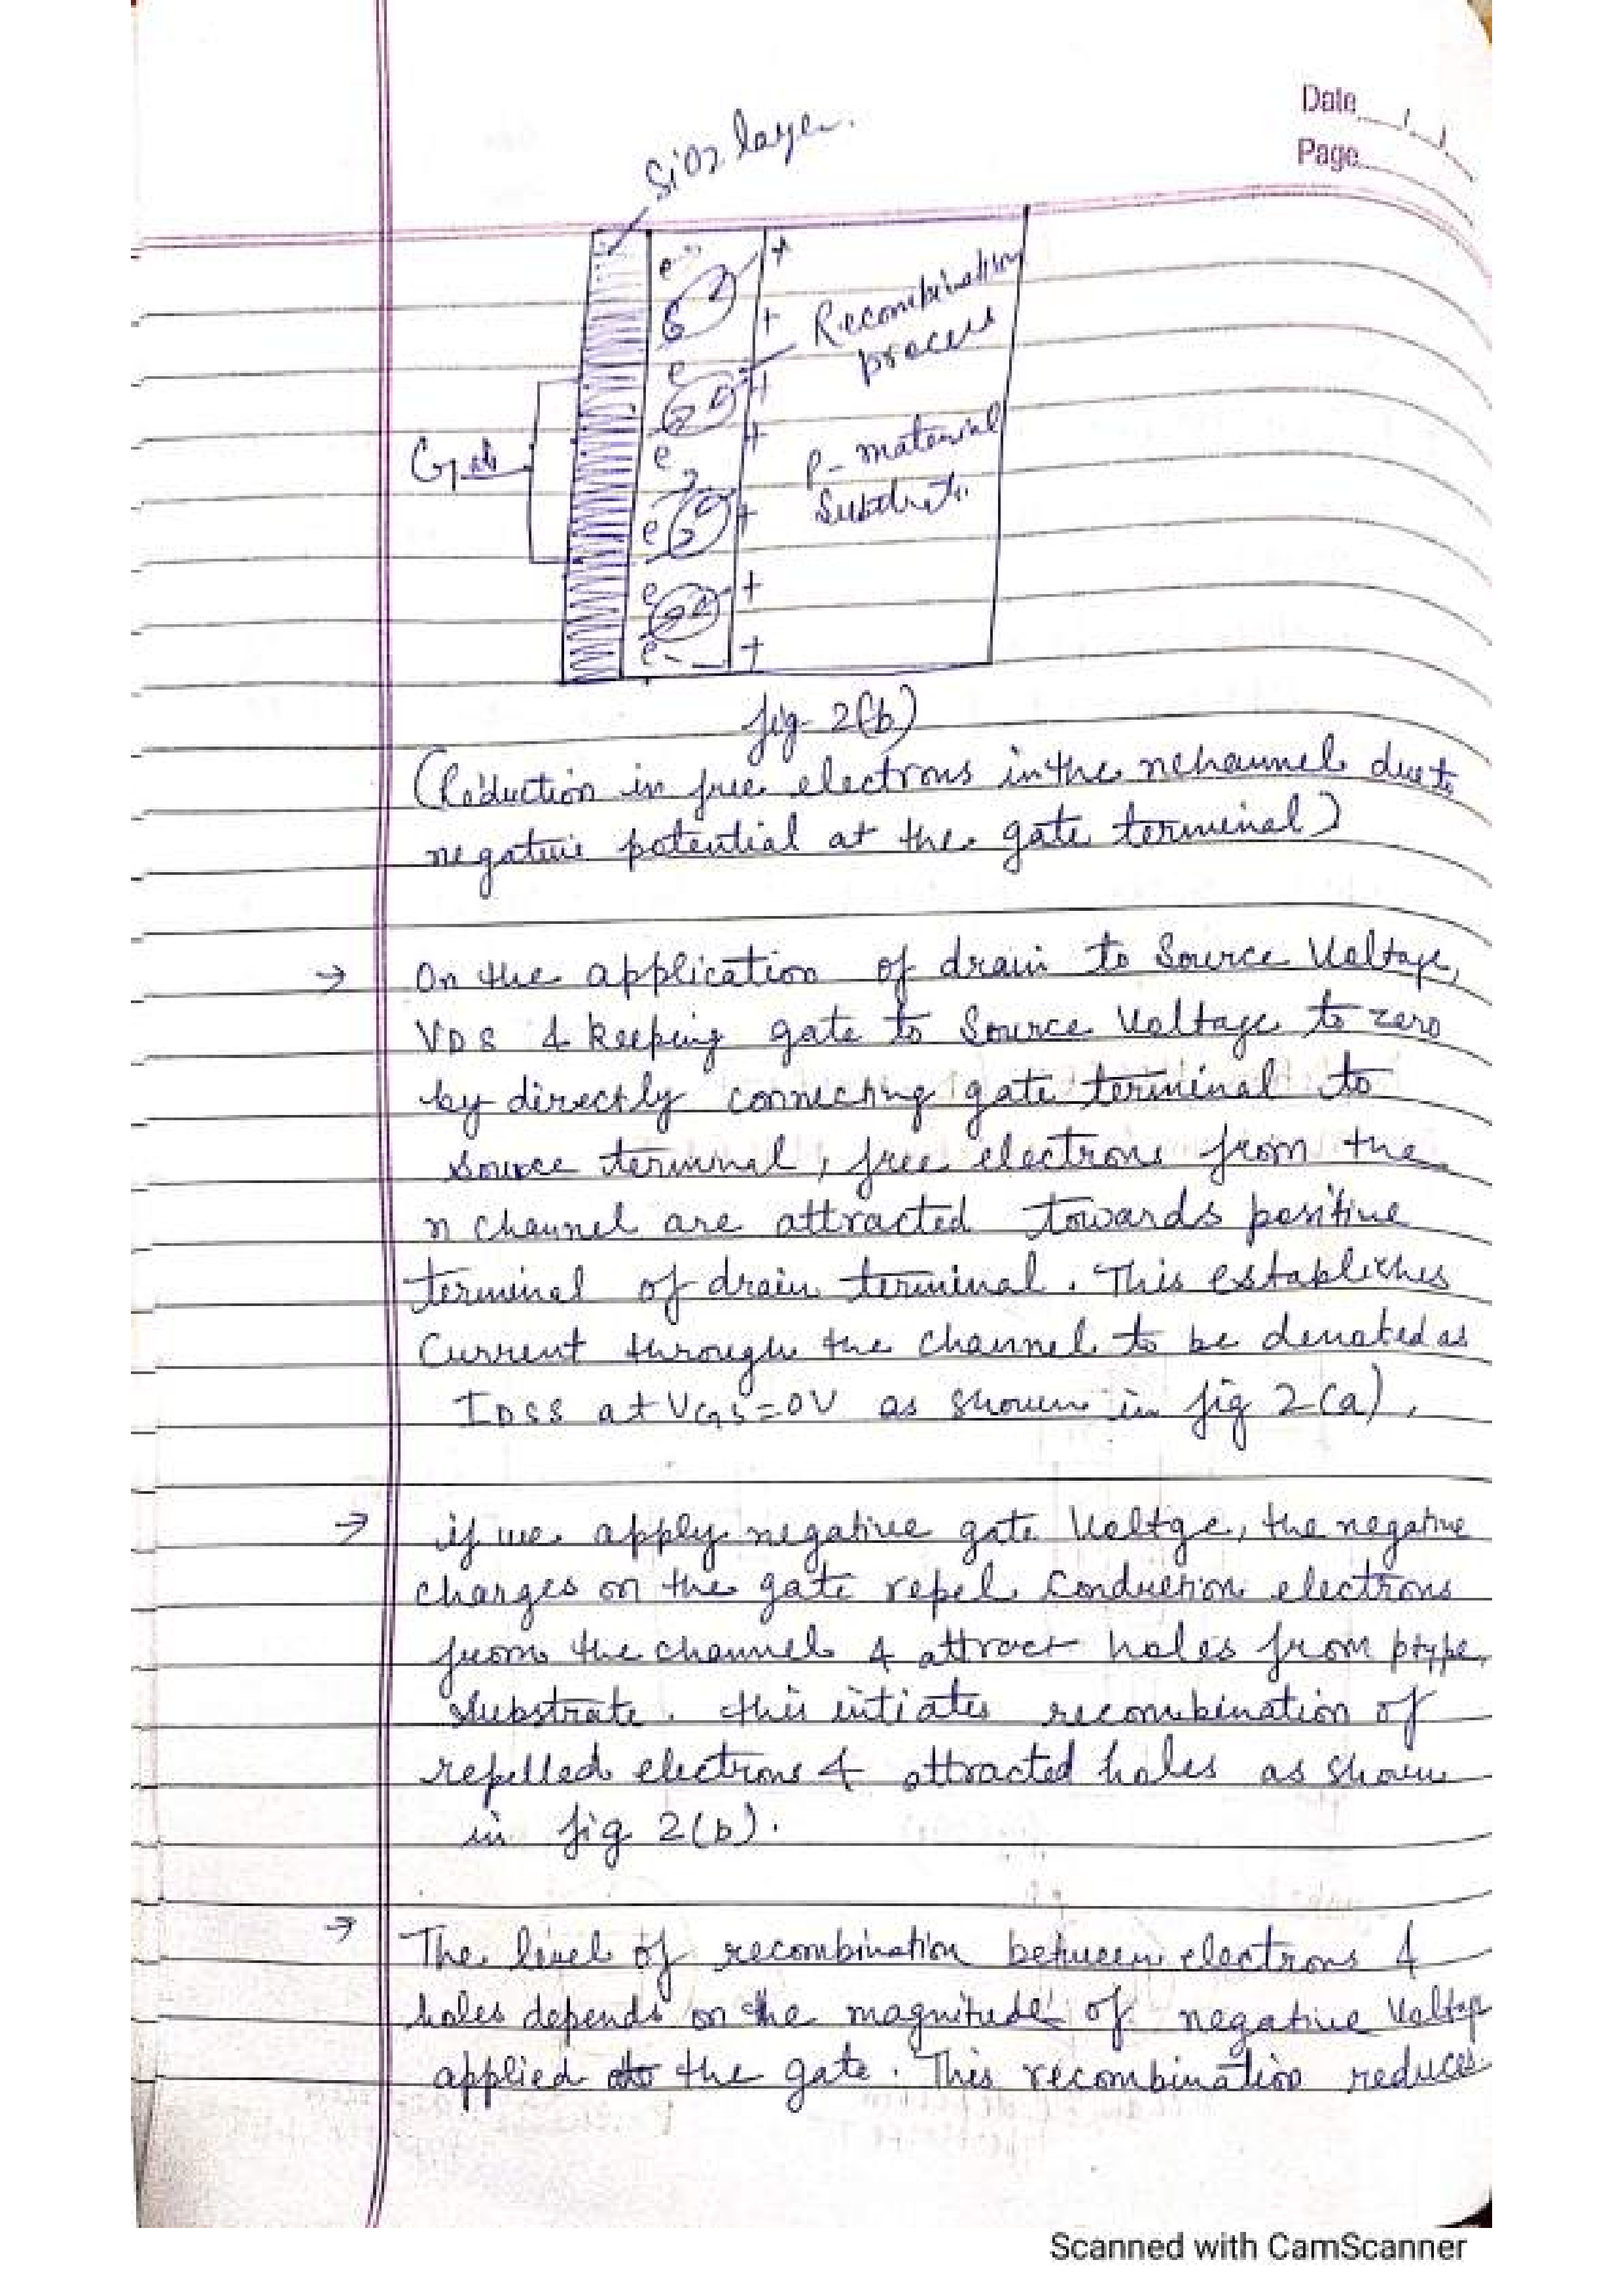 Date
Page
SiO2 layer.
e
+
Recombination
process
+
e
+
+
Gate
e
P- material
Substrate
e
+
e
+
e
+
fig 2(b)
(Reduction in free electrons in the nchannel due to
negative potential at the gate terminal)
→ On the application of drain to Source Voltage,
VDS & keeping gate to Source Voltage to zero
by directly connecting gate terminal to
source terminal, free electrons from the
n channel are attracted towards positive
terminal of drain terminal. This establishes
Current through the channel to be denoted as
IDSS at VGS=0V as shown in fig 2(a).
→ if we apply negative gate Voltge, the negative
charges on the gate repel conduction electrons
from the channel & attract holes from ptype
substrate. this intiates recombination of
repelled electrons & attracted holes as shown
in fig 2(b).
→ The level of recombination between electrons &
holes depends on the magnitude of negative Voltage
applied to the gate. This recombination reduces
Scanned with CamScanner